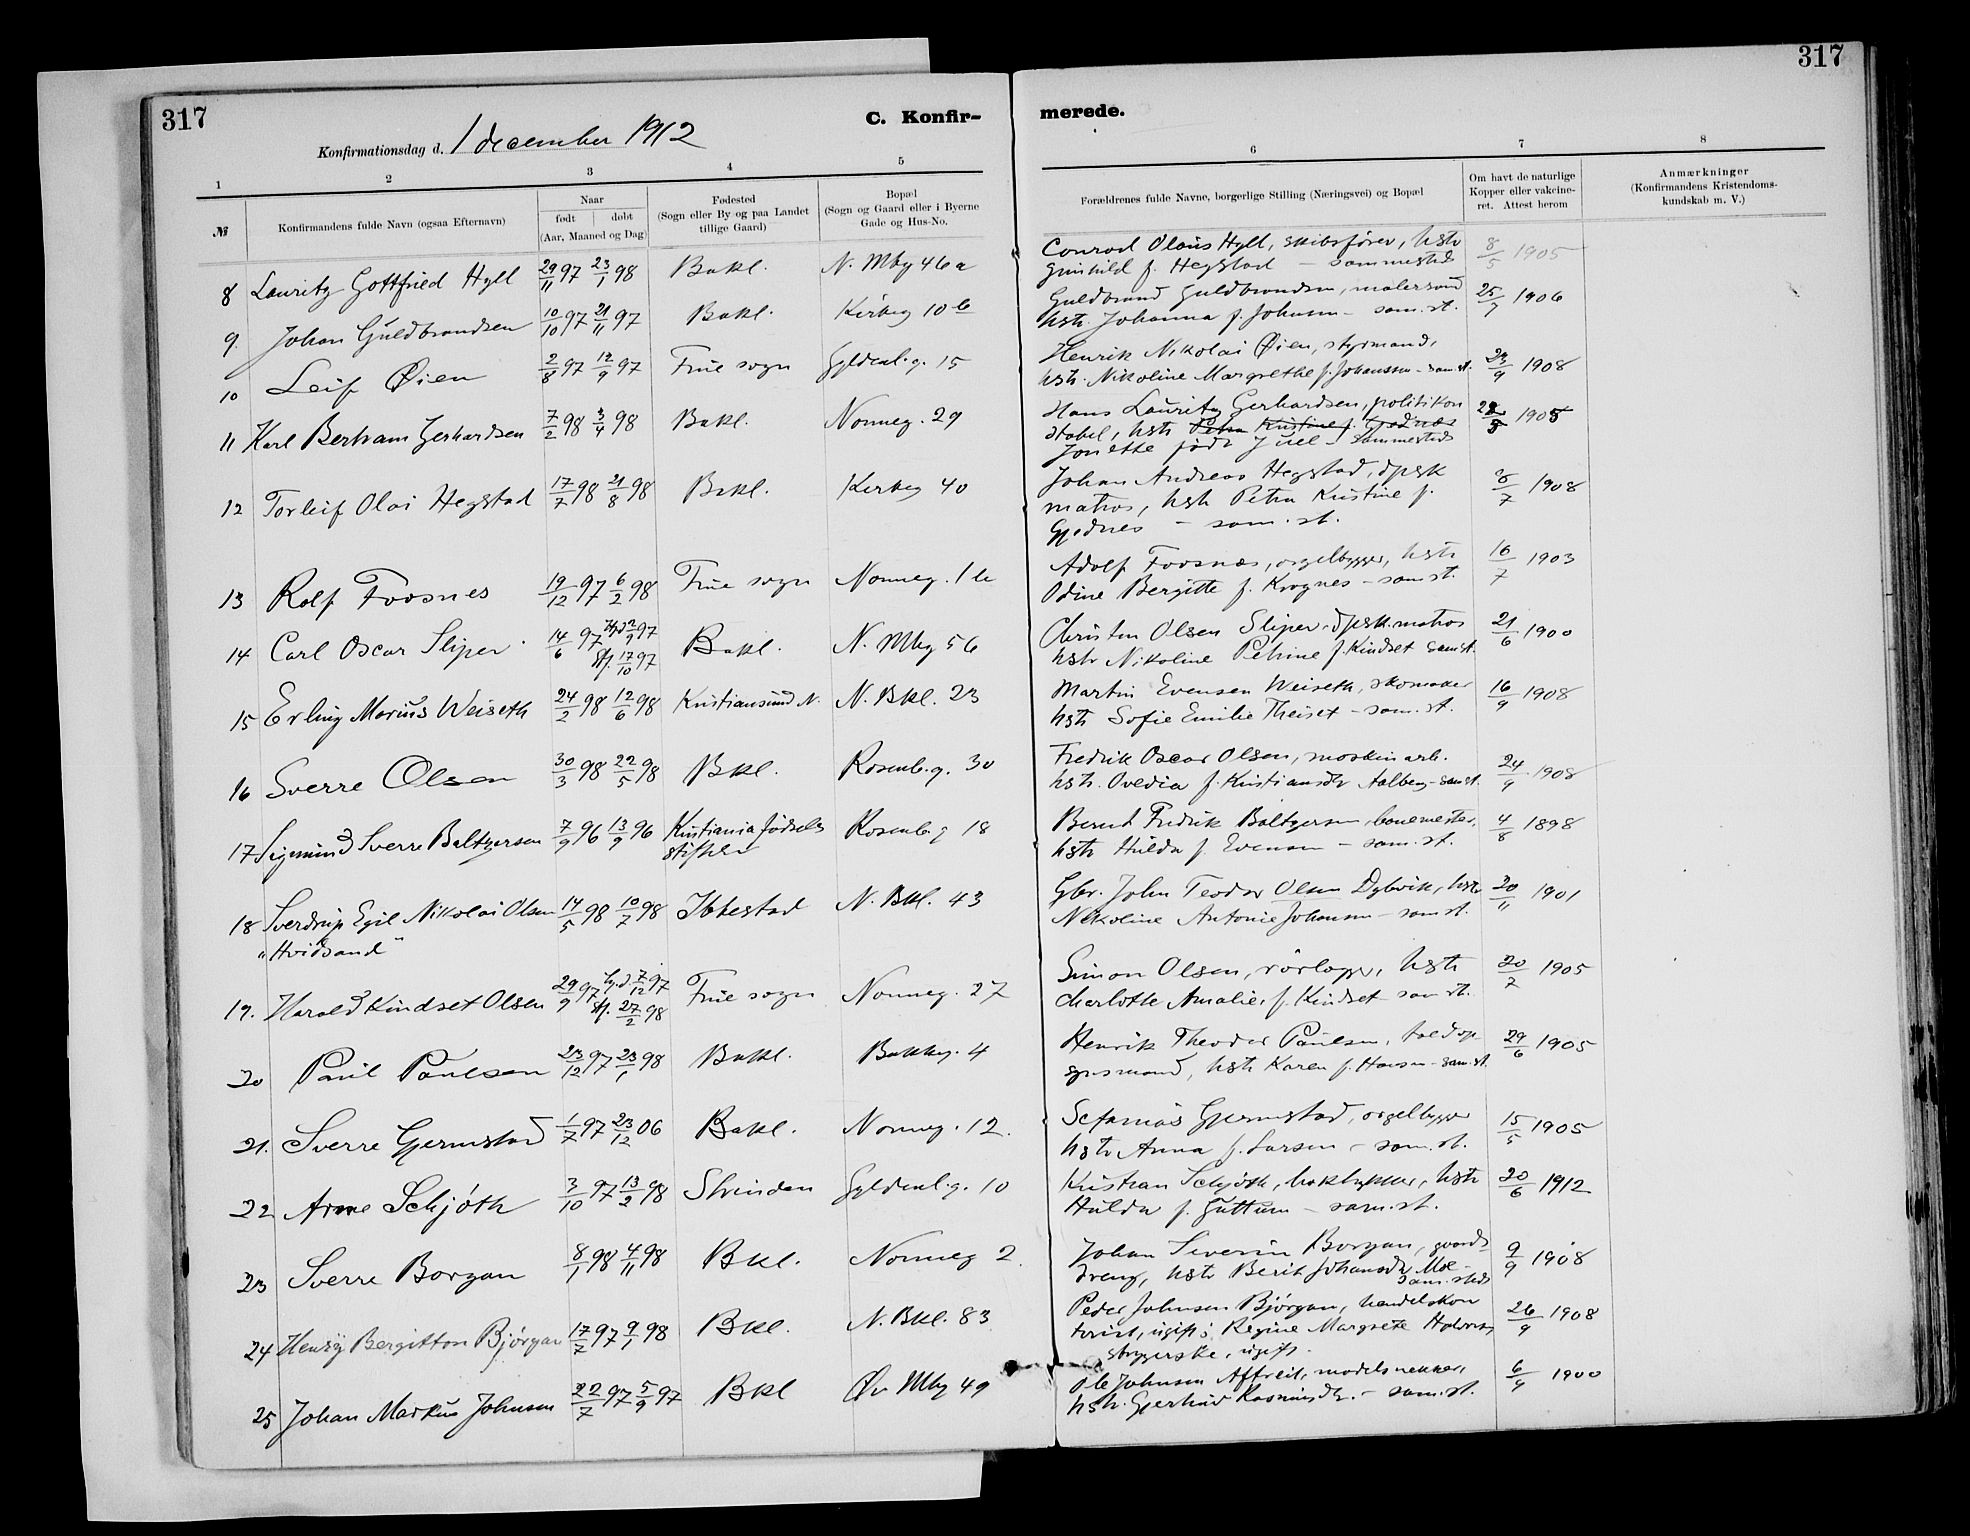 317
317
C. Konfir-
merede.
Konfirmationsdag d. 1 december 1912
1 2 3 4 5
6 7 8
№
Konfirmandens fulde Navn (ogsaa Efternavn)
Naar
født | døbt
(Aar, Maaned og Dag)
Fødested
(Sogn eller By og paa Landet
tillige Gaard)
Bopæl
(Sogn og Gaard eller i Byerne
Gade og Hus-No.
Forældrenes fulde Navne, borgerlige Stilling (Næringsvei) og Bopæl
Om havt de naturlige
Kopper eller vakcine-
ret. Attest herom
Anmærkninger
(Konfirmandens Kristendoms-
kundskab m. V.)
8 Lauritz Gottfried Hyll 29/11 97 23/1 98 Bakl. N. Mbg 46a
Conrad Olaus Hyll, skibsfører, hstr
Gunhild f. Hegstad - sammesteds
8/5 1905
9. Johan Guldbrandsen 10/10 97 21/11 97 Bakl. Kirkeg 10 b
Guldbrand Guldbrandsen, malersvend
hstr. Johanna f. Johnsen - sam. st.
25/7 1906
10 Leif Øien 2/8 97 12/9 97 Frue sogn Gyldenl.g. 15
Henrik Nikolai Øien, styrmand,
hstr. Nikoline Margrethe f. Johanssen - sam. st.
23/9 1908
11 Karl Bertram Gerhardsen 7/2 98 3/4 98 Bakl. Nonneg. 29
Hans Lauritz Gerhardsen, politikon
stabel, hstr Petra Kristine f. Gjednæs
Jonette født Juel - sammesteds
1905
12 Torleif Olai Hegstad 17/7 98 21/8 98 Bakl. Kirkeg 40
Johan Andreas Hegstad, dpsk
matros, hstr Petra Kristine f.
Gjednes - sam. st.
8/7 1908
13 Rolf Foosnes 19/12 97 6/2 98 Frue sogn Nonneg. 1 b
Adolf Foosnæs, orgelbygger, hstr
Odine Bergitte f. Krognes - sam st.
16/7 1903
14 Carl Oscar Sliper 14/6 97 Hj.d 2/9 97
stf. 17/10 97 Bakl. N. Mbg 56
Christen Olsen Sliper, dpsk. matros
hstr Nikoline Petrine f. Kindset sam st.
21/6 1900
15 Erling Marius Weiseth 24/2 98 12/6 98 Kristiansund N. N. Bkl. 23
Martin Evensen Weiseth, skomaker
hstr Sofie Emilie Theiset - sam. st.
16/9 1908
16 Sverre Olsen 30/3 98 22/5 98 Bkl. Rosenb.g. 30
Fredrik Oscar Olsen, maskinarb.
hstr. Ovedia f. Kristiansdr Aalberg - sam st.
24/9 1908
17 Sigmund Sverre Baltzersen 7/9 96 13/9 96 Kristiania fødsels
stiftelse Rosenb.g 18
Bernt Fredrik Baltzersen, banemester,
hstr Hulda f. Evensen - sam. st.
4/8 1898
18 Sverdrup Egil Nikolai Olsen 14/5 98 10/7 98 Ibbestad N. Bkl. 43
"Hvidsand"
Gbr. John Teodor Olsen Dybvik, hstr
Nikoline Antonie Johansen - sam st.
30/11 1901
19. Harald Kindset Olsen 29/9 97 Hj.d 7/12 97
stf. 27/2 98 Frue sogn Nonneg. 27
Simon Olsen, rørlægger, hstr
Charlotte Amalie, f. Kindset - sam st.
20/7 1905
20 Paul Paulsen 23/12 97 23/1 98 Bakl. Bakkeg. 4
Henrik Theodor Paulsen, toldop
synsmand, hstr Karen f. Hansen - sam. st.
29/6 1905
21. Sverre Gjermstad 1/7 97 23/12 06 Bakl. Nonneg. 12.
Sefanias Gjermstad, orgelbygger
hstr Anna f. Larsen - sam. st.
15/5 1905
22 Arne Schjöth 3/10 97 13/2 98 Strinden Gyldenl.g. 10
Kristian Schjöth, boktrykker, hstr
Hulda f. Guttum - sam. st.
20/6 1912
23 Sverre Borgan 8/1 98 4/11 98 Bkl. Nonneg 2.
Johan Severin Borgan, gaards-
dreng, hstr Berit Johansdr Moe -
sam. steds
9/9 1908
24 Henry Bergitton Bjørgan 17/7 97 9/1 98 Bkl. N. Bkl. 83
Peder Johnsen Bjørgan, handelskon
torist, ugift; Regine Margrete
strygerske, ugift.
26/9 1908
25 Johan Markus Johnsen 22/7 97 5/9 97 Bkl Øv Mbg 49
Ole Johnsen Affreit, modelsnekker,
hstr. Gjertrud Rasmusdr. - sam. st.
6/9 1900